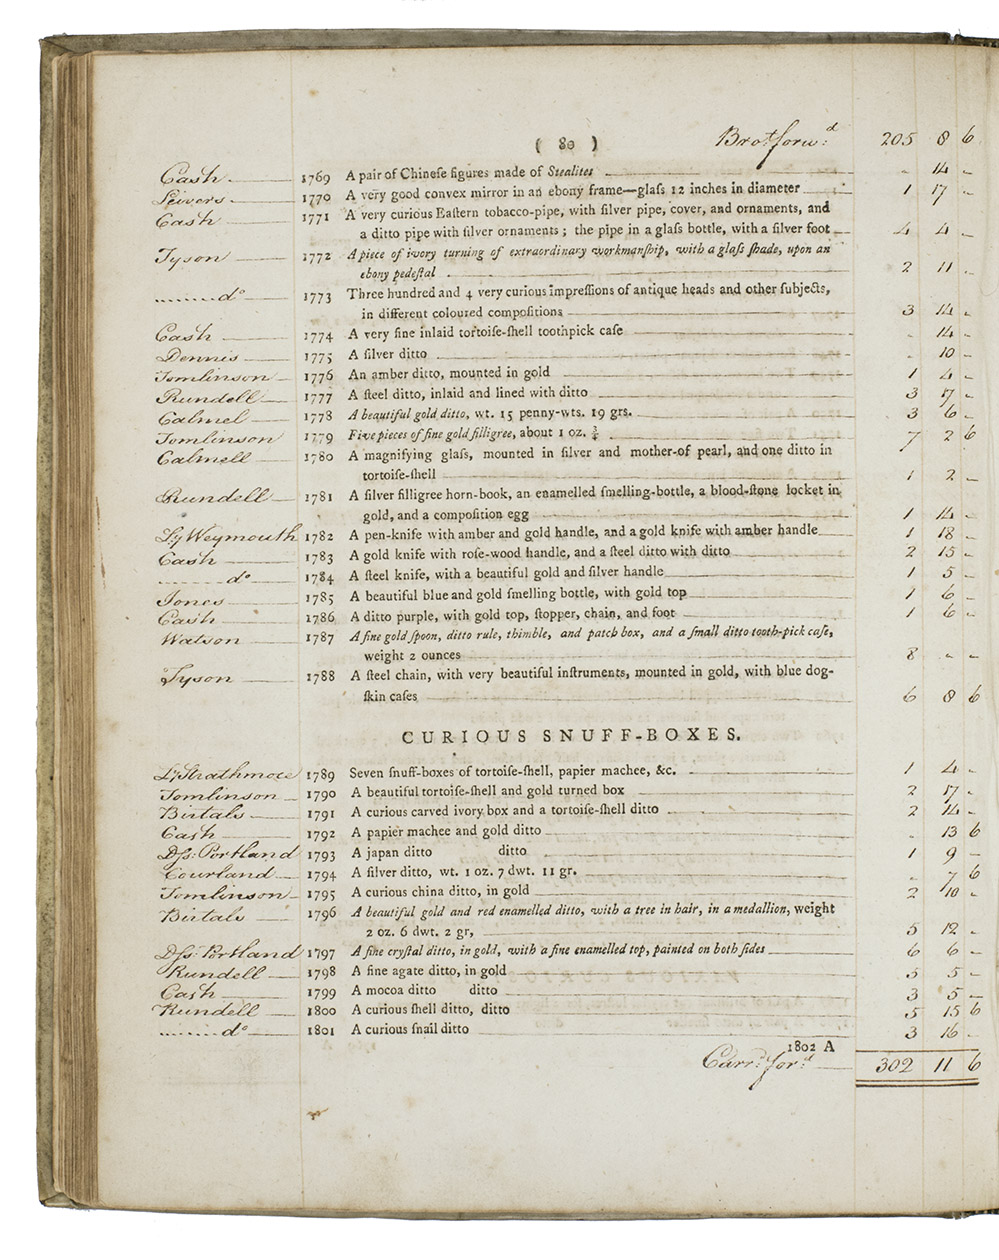 ( 80 ) Brot forwd: 205 8 6
Cash 1769 A pair of Chineſe figures made of Stealites - 14 -
Seivers 1770 A very good convex mirror in an ebony frame—glaſs 12 inches in diameter 1 17 -
Cash 1771 A very curious Eaſtern tobacco-pipe, with ſilver pipe, cover, and ornaments, and
a ditto pipe with ſilver ornaments; the pipe in a glaſs bottle, with a ſilver foot 4 4 -
Tyson 1772 A piece of ivory turning of extraordinary workmanſhip, with a glaſs ſhade, upon an
ebony pedeſtal 2 11 -
do 1773 Three hundred and 4 very curious impreſſions of antique heads and other ſubjects,
in different coloured compoſitions 3 14 -
Cash 1774 A very fine inlaid tortoiſe-ſhell toothpick caſe - 14 -
Dennis 1775 A ſilver ditto - 10 -
Tomlinson 1776 An amber ditto, mounted in gold 1 4 -
Rundell 1777 A ſteel ditto, inlaid and lined with ditto 3 7 -
Calmel 1778 A beautiful gold ditto, wt. 15 penny-wts. 19 grs. 3 6 -
Tomlinson 1779 Five pieces of fine gold filligree, about 1 oz. ¾ 7 2 6
Calmell 1780 A magnifying glaſs, mounted in ſilver and mother-of pearl, and one ditto in
tortoiſe-ſhell 1 2 -
Rundell 1781 A ſilver filligree horn-book, an enamelled ſmelling-bottle, a blood-ſtone locket in
gold, and a compoſition egg 1 14 -
Ly Weymouth 1782 A pen-knife with amber and gold handle, and a gold knife with amber handle 1 18 -
Cash 1783 A gold knife with roſe-wood handle, and a ſteel ditto with ditto 2 15 -
do 1784 A ſteel knife, with a beautiful gold and ſilver handle 1 5 -
Jones 1785 A beautiful blue and gold ſmelling bottle, with gold top 1 6 -
Cash 1786 A ditto purple, with gold top, ſtopper, chain, and foot 1 6 -
Watson 1787 A fine gold ſpoon, ditto rule, thimble, and patch box, and a ſmall ditto tooth-pick caſe,
weight 2 ounces 8 - -
Tyson 1788 A ſteel chain, with very beautiful inſtruments, mounted in gold, with blue dog-
ſkin caſes 6 8 6
CURIOUS SNUFF-BOXES.
Ly Strathmore 1789 Seven ſnuff-boxes of tortoiſe-ſhell, papier machee, &c. 1 4 -
Tomlinson 1790 A beautiful tortoiſe-ſhell and gold turned box 2 17 -
Birtals 1791 A curious carved ivory box and a tortoiſe-ſhell ditto 2 14 -
Cash 1792 A papier machee and gold ditto - 13 6
Dſs: Portland 1793 A japan ditto ditto 1 9 -
Courland 1794 A ſilver ditto, wt. 1 oz. 7 dwt. 11 gr. - 7 6
Tomlinson 1795 A curious china ditto, in gold 2 10 -
Birtals 1796 A beautiful gold and red enamelled ditto, with a tree in hair, in a medallion, weight
2 oz. 6 dwt. 2 gr, 5 12 -
Dſs: Portland 1797 A fine cryſtal ditto, in gold, with a fine enamelled top, painted on both ſides 6 6 -
Rundell 1798 A fine agate ditto, in gold 5 5 -
Cash 1799 A mocoa ditto ditto 3 5 -
Rundell 1800 A curious ſhell ditto, ditto 5 15 6
do 1801 A curious ſnail ditto 3 16 -
1802 A
Carrd: ford 302 11 6